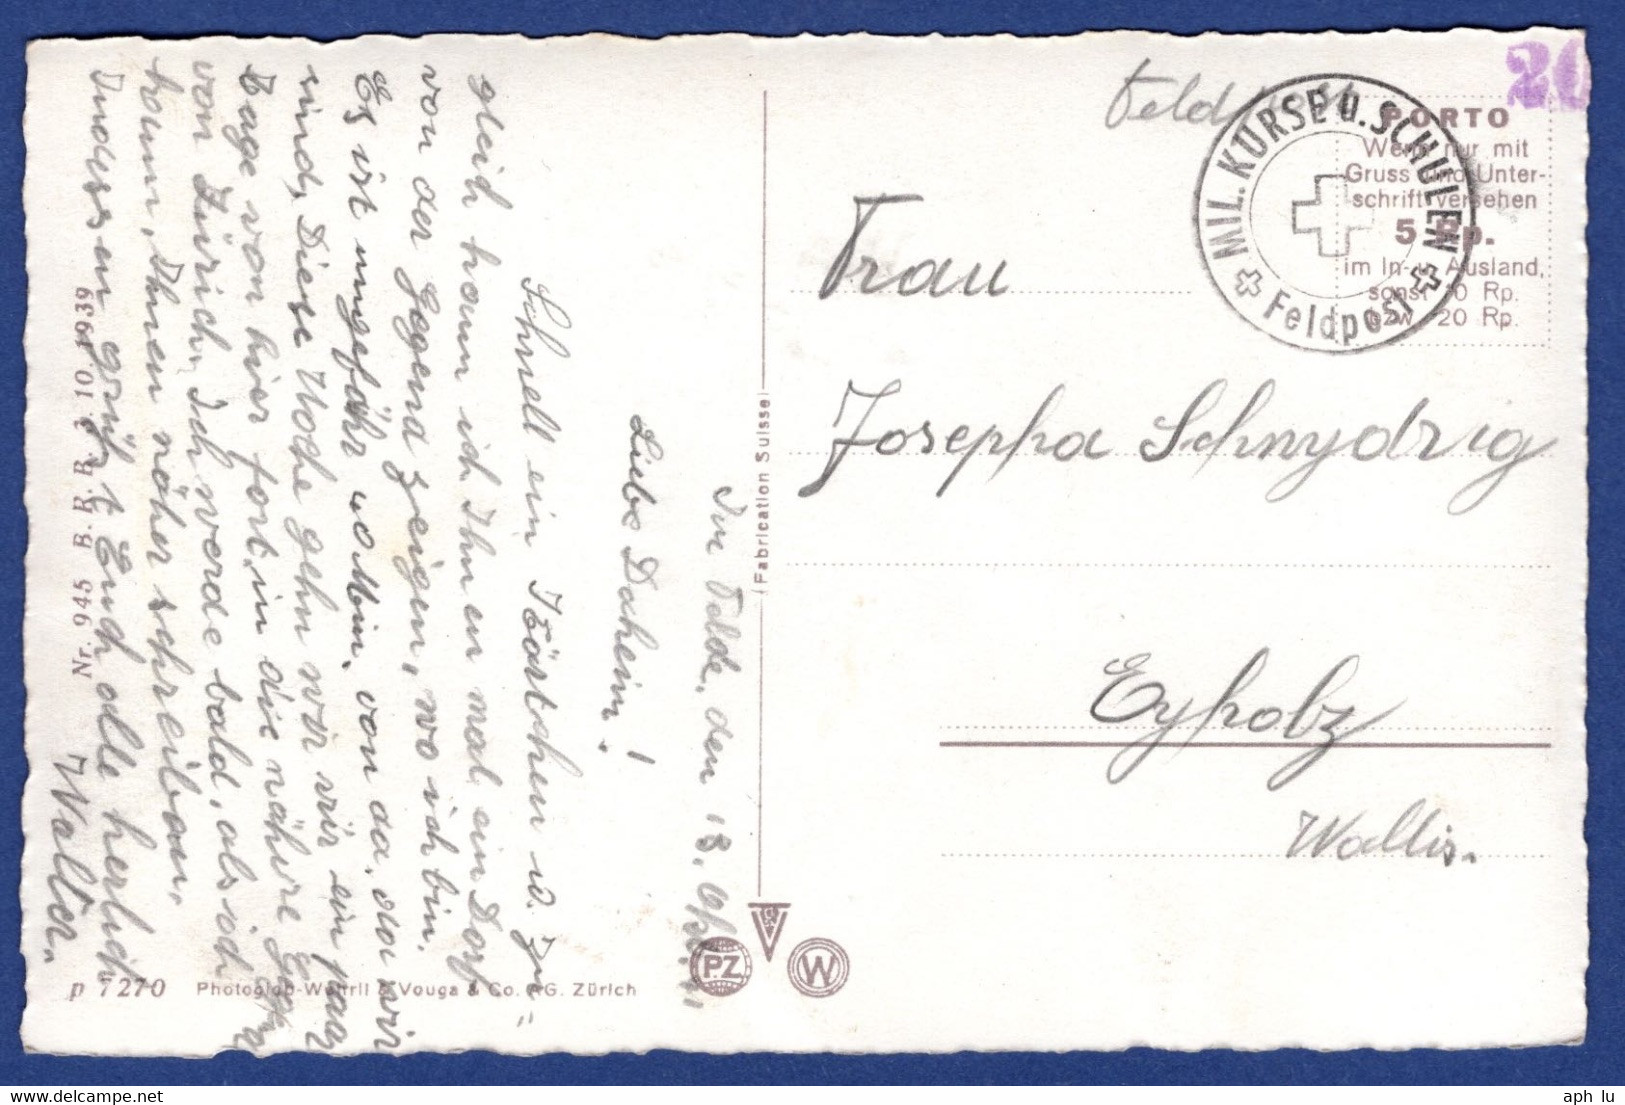 Im Felde, den 18.
Liebe Daheim!
Schnell ein Kärtchen u. Zu-
gleich kann ich Ihnen mal ein Dorf
von der Gegend zeigen, wo ich bin.
Es ist ungefähr 40 Min. von da, wo wir
sind. Diese Woche gehn wir vir ein paar
Tage von hier fort, in die nähere
von Zürich. Ich werde bald, als ich
kann, Ihnen näher schreiben.
Indessen grüßt Euch alle herlich
Walter.
Nr. 945 B. R. B. 3. 10. 1939
p 7270 Photoglob-Wehrli & Vouga & Co. A.G. Zürich
Fabrication Suisse
PZ
W
Feldpost
MIL. KURSE u. SCHULEN
Feldpost
20
PORTO
Wenn nur mit
Gruss und Unter-
schrift versehen
5 Rp.
im In- u. Ausland,
sonst 10 Rp.
bzw. 20 Rp.
Frau
Josepha Schnydrig
Eyholz
Wallis.
aph lu